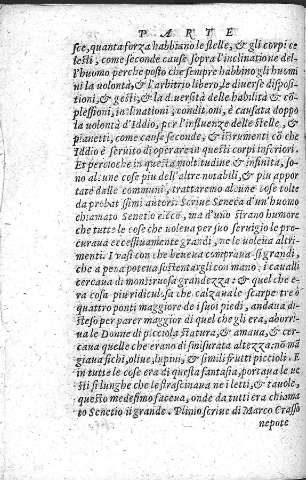 PARTE
sce, quanta forza habbiano le stelle, & gli corpi ce
lesti, come seconde cause sopra l'inclinatione del-
l'huomo perche posto che sempre habbino gli huomi
ni la uolontà, & l'arbitrio libero, le diuerse disposi-
tioni, & gesti, & la diuersità delle habilità & cō-
plessioni, inclinationi, conditioni, è causata doppo
la uolontà d'Iddio, per l'influenze delle stelle, &
pianetti, come cause seconde, & istrumenti cō che
Iddio è seruito di operare in questi corpi inferiori.
Et percioche in questa moltitudine & infinità, so-
no alcune cose piu dell'altre notabili, & piu appor
tate dalle communi, trattaremo alcune cose tolte
da probatissimi autori. Scriue Seneca d'un'huomo
chiamato Senetio ricco, ma d'uno strano humore
che tutte le cose che uoleua per suo seruigio le pro-
curaua eccessiuamente grandi, ne le uoleua altri-
menti. I uasi con che beueua compraua sì grandi,
che a pena poteua sostentargli con mano: i caualli
cercaua di monstruosa grandezza: & quel che e-
ra cosa piu ridiculosa che calzauale scarpe tre ò
quattro ponti maggiore de i suoi piedi, andaua di-
steso per parer maggior di quel che gli era, aborri-
ua le Donne di picciola statura, & amaua, & cer-
caua quelle che erano di smisurata altezza: nō mā
giaua fichi, oliue, lupini, & simili frutti piccioli. E
in tutte le cose era di questa fantasia, portaua le ue
sti sì lunghe che le strascinaua ne i letti, & tauole,
questo medesimo faceua, onde da tutti era chiama
to Senetio il grande. Plinio scriue di Marco Crasso
nepote